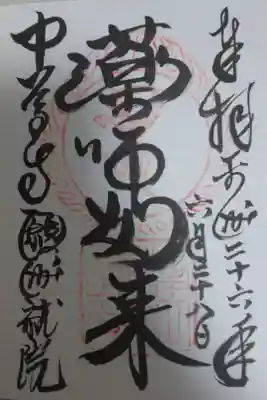 奉拝 平成二十六年
六月二十八日
薬師如来
中尊寺
願成就院